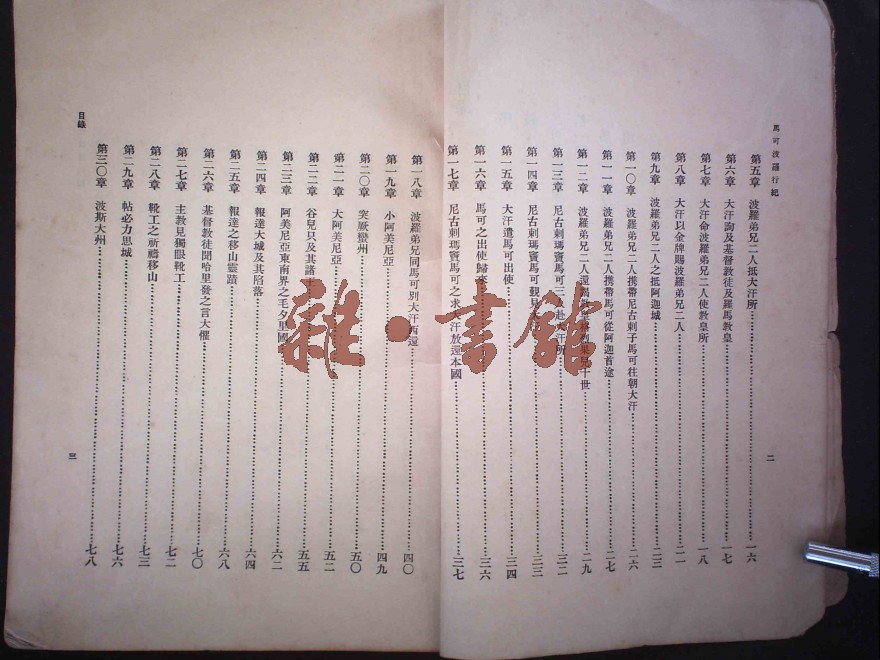 馬可波羅行紀
第五章 波羅弟兄二人抵大汗所……一六
第六章 大汗詢及基督教徒及羅馬教皇……一七
第七章 大汗命波羅弟兄二人使教皇所……一八
第八章 大汗以金牌賜波羅弟兄二人……二一
第九章 波羅弟兄二人之抵阿迦城……二三
第一〇章 波羅弟兄二人攜帶尼古剌子馬可往朝大汗……二六
第一一章 波羅弟兄二人攜帶馬可從阿迦首途……二七
第一二章 波羅弟兄二人還 十世……二九
第一三章 尼古剌瑪竇馬可三人赴大汗所……三二
第一四章 尼古剌瑪竇馬可覲見大汗……三三
第一五章 大汗遣馬可出使……三四
第一六章 馬可之出使歸來……三六
第一七章 尼古剌瑪竇馬可之求大汗放還本國……三七
二
第一八章 波羅弟兄同馬可別大汗西還……四〇
第一九章 小阿美尼亞……四九
第二〇章 突厥蠻州……五〇
第二一章 大阿美尼亞……五二
第二二章 谷兒只及其諸王……五五
第二三章 阿美尼亞東南界之毛夕里國……六二
第二四章 報達大城及其陷落……六四
第二五章 報達之移山靈蹟……六八
第二六章 基督教徒聞哈里發之言大懼……七〇
第二七章 主教見獨眼靴工……七二
第二八章 靴工之祈禱移山……七三
第二九章 帖必力思城……七六
第三〇章 波斯大州……七八
目錄
三
雜·書館